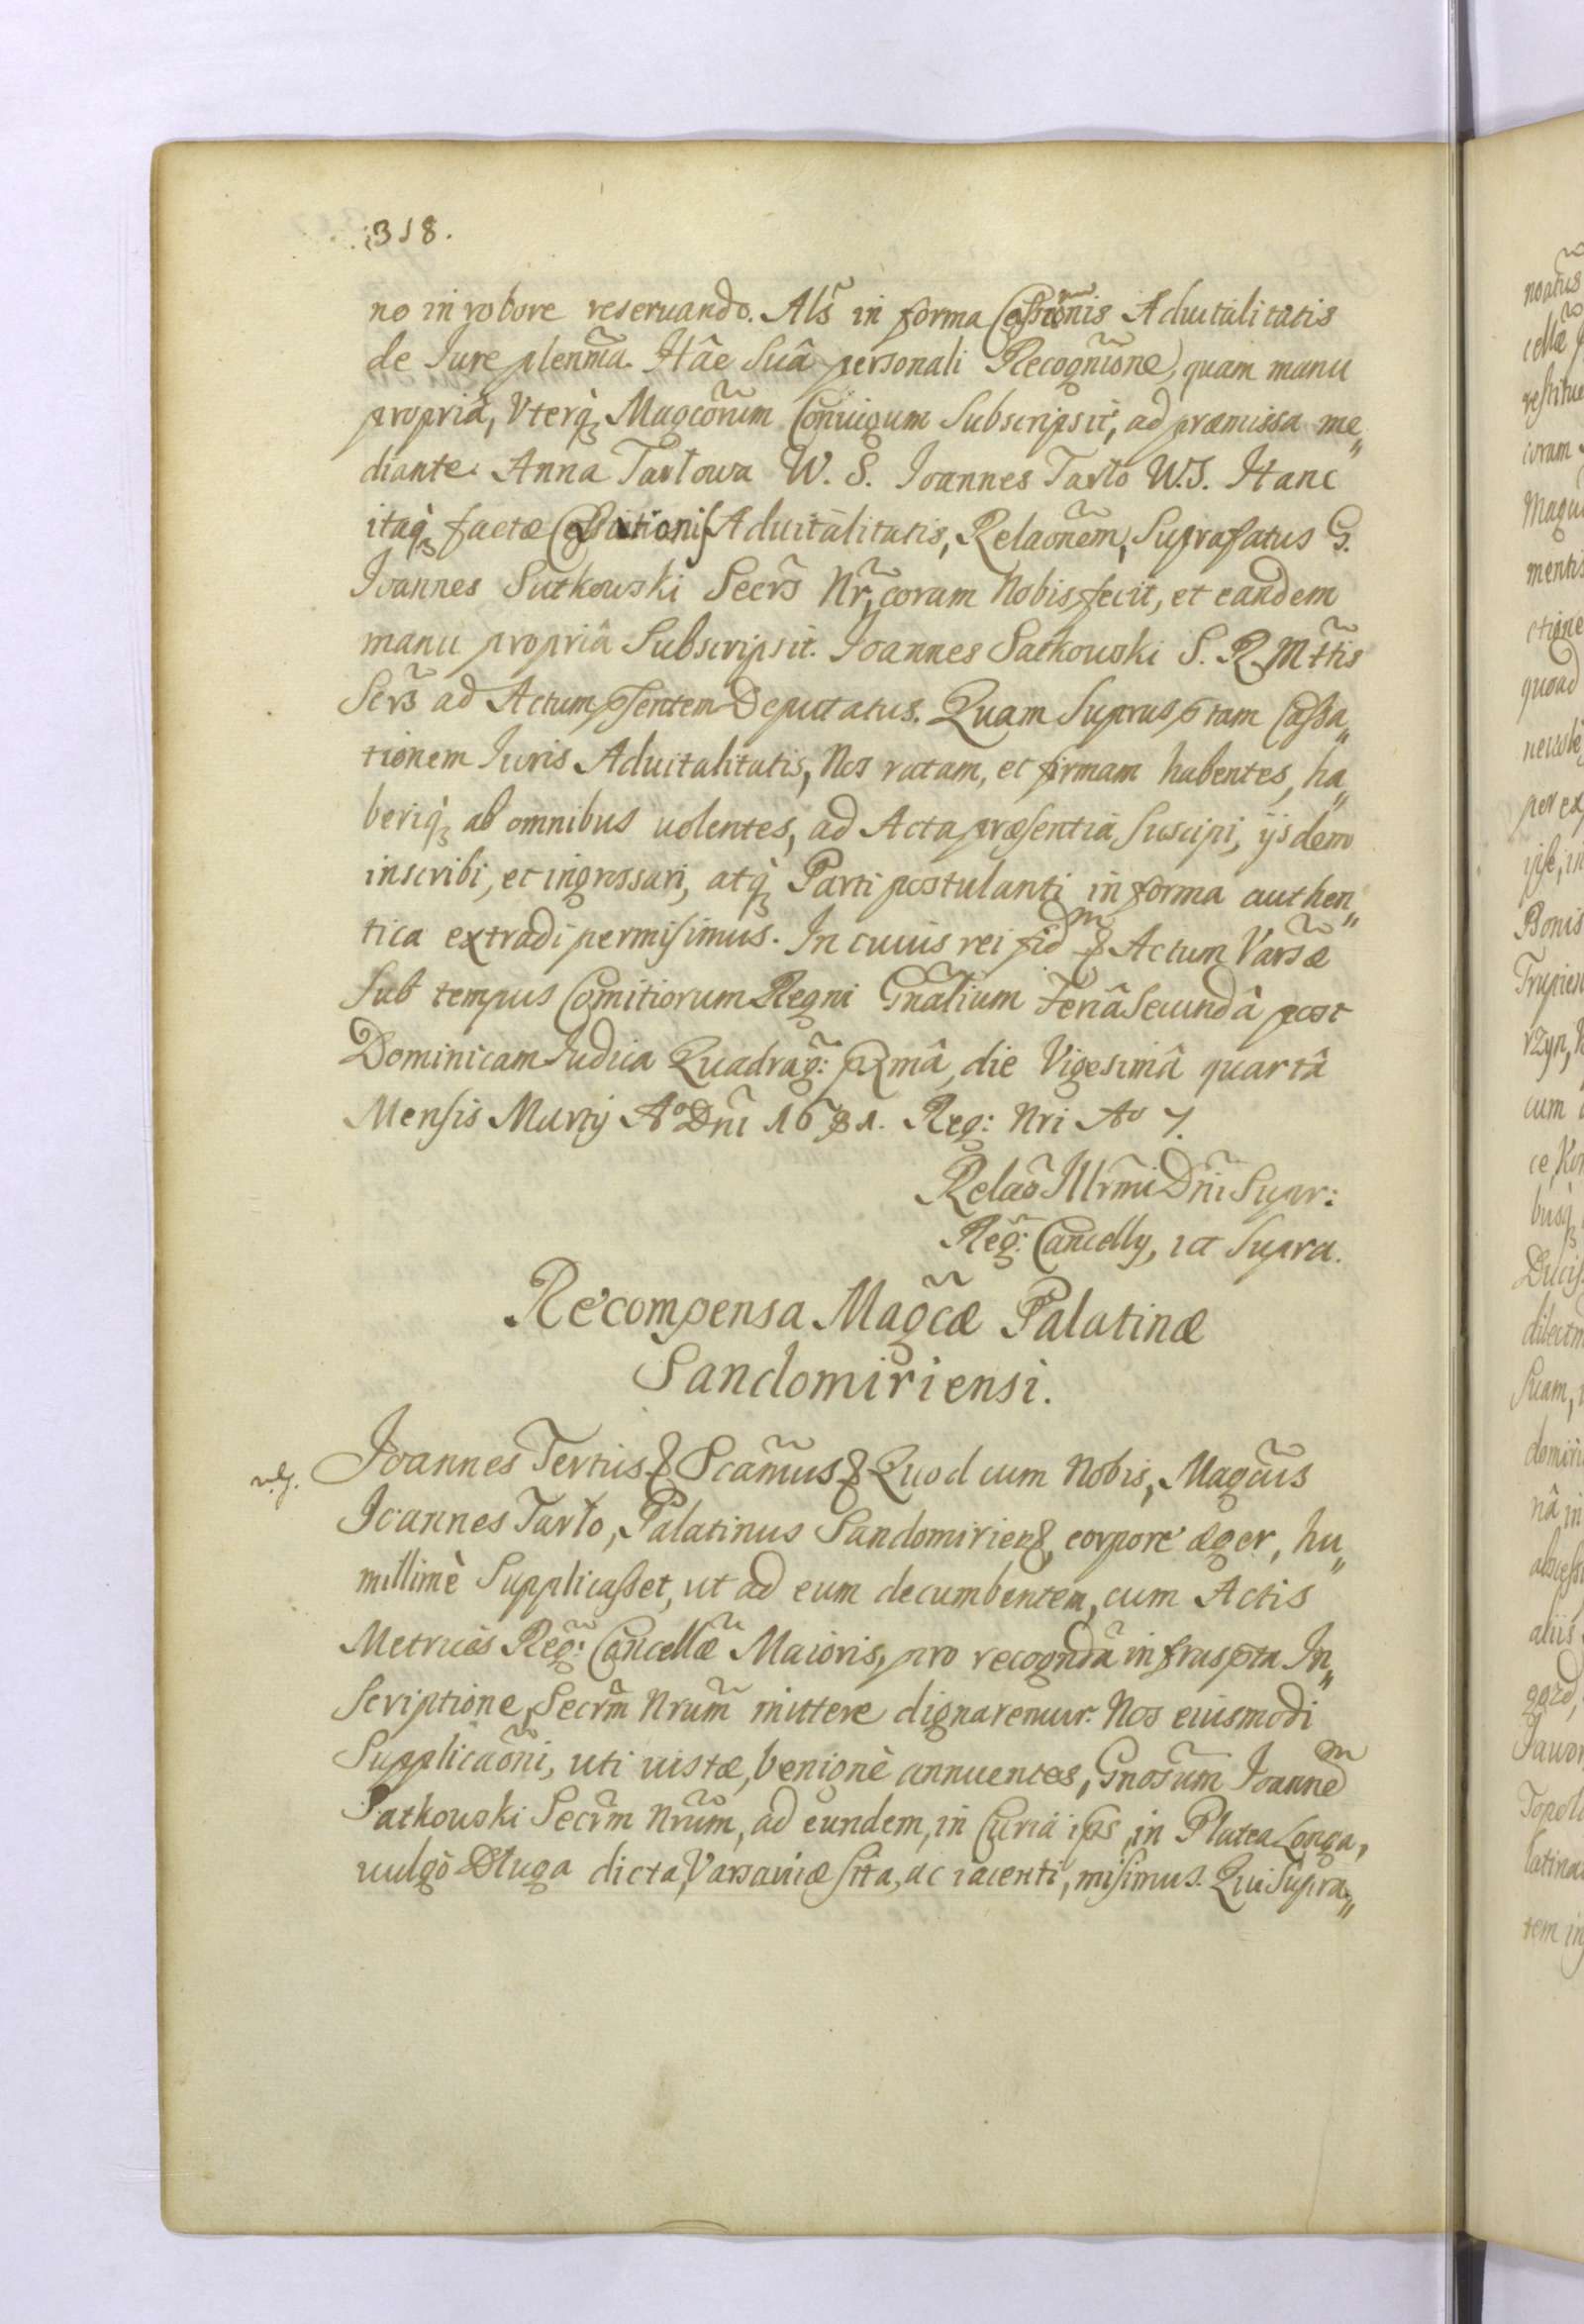 318.
no in robore reseruando. Als̃ in forma Cessiõnis Aduitalitatis
de Iure plenñia. Hâc Suâ personali Recogniõne, quam manu
propriâ, Vterq; Magcõrum Coniugum Subscripsit, ad præmissa me„
diante. Anna Tarłowa W. S. Joannes Tarło W. S. Hanc
itaq; factæ Cessationis Aduitalitatis, Relaõnem, Suprafatus G.
Joannes Satkowski Secr̃s Nr̃, coram Nobis fecit, et eandem
manu propriâ Subscripsit. Joannes Satkowski S. R. Mttis
Secr̃s ad Actum p̃sentem Deputatus. Quam Suprasp̃tam Cassa„
tionem Iuris Aduitalitatis, Nos ratam, et firmam habentes, ha„
beriq; ab omnibus uolentes, ad Acta præsentia Suscipi, ijsdem
inscribi, et ingrossari, atq; Parti postulanti in forma authen„
tica extradi permisimus. In cuius rei fid<sup>m</sup> & Actum Varsæ
Sub tempus Comitiorum Regni Gñalium Feriâ Secundâ post
Dominicam Iudica Quadrag: pxmâ, die Vigesimâ quartâ
Mensis Martij A° Dñi 1681. Reg: Nri A° 7.
Relaõ Illr̃mi Dñi Supr:
Reg: Cancellŷ, ut Supra.
Recompensa Magcæ Palatinæ
Sandomiriensi.
Joannes Tertius & Scam̃us & Quod cum Nobis, Magcus
Joannes Tarło, Palatinus Sandomirien&, corpore æger, hu„
millimè Supplicasset, ut ad eum decumbentem, cum Actis
Metrices Reg: Cancellæ Maioris, pro recognda infraspta In„
scriptione, Secrm̃ Nrum̃ mittere dignaremur. Nos eiusmodi
Supplicaõni, uti iustæ, benignè annuentes, Gnosum̃ Joanne<sup>m</sup>
Satkowski Secrm̃ Nrum̃, ad eundem, in Curia ips, in Platea Longa,
uulgò Długa dicta, Varsauiæ sita, ac iacenti, misimus. Qui Supra„